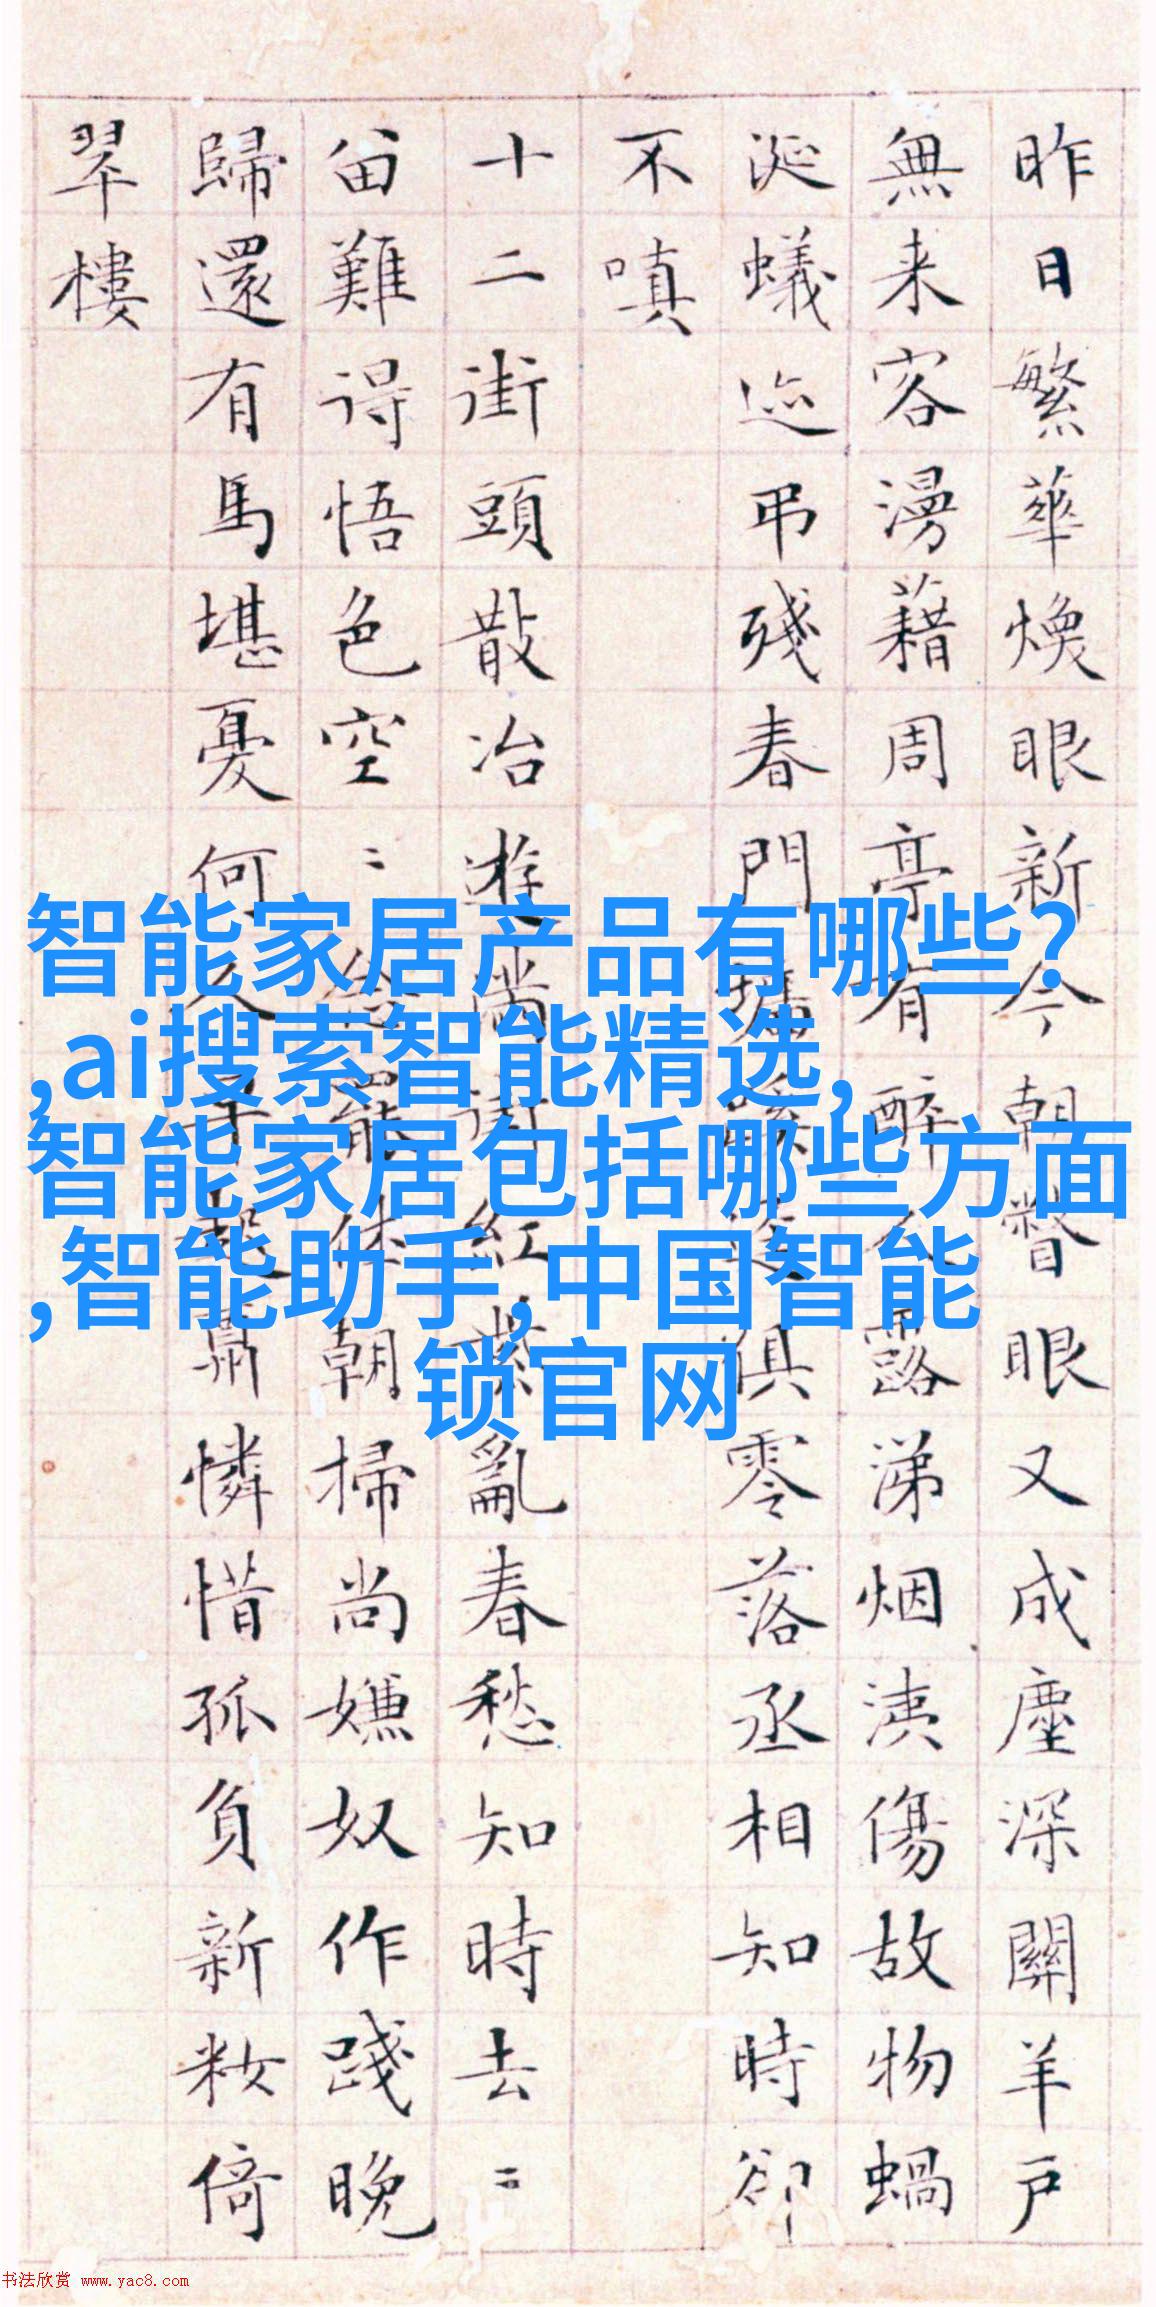 昨日繁華煥眼新今朝瞥眼又成塵深關羊戶
無来客漫藉周亭有醉人露涕烟洟傷故物蝸
涎蟻迹弔殘春門墙蹊逕俱零落丞相知時卻
不嗔
十二街頭散冶遊滿街紅紫亂春愁知時去〻
留難得悟色空〻念罷休朝掃尚嫌奴作踐晚
歸還有馬堪憂何人早起憐惜孤負新妝倚
翠樓
智能家居产品有哪些?
,ai搜索智能精选,
智能家居包括哪些方面
,智能助手,中国智能
锁官网
书法欣赏 www.yac8.com